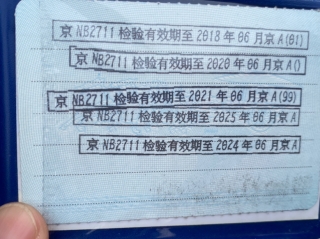 京NB2711检验有效期至2018年06月京A(01)
京NB2711检验有效期至2020年06月京A()
京NB2711检验有效期至2021年06月京A(99)
京NB2711检验有效期至2025年06月京A
京NB2711检验有效期至2024年06月京A